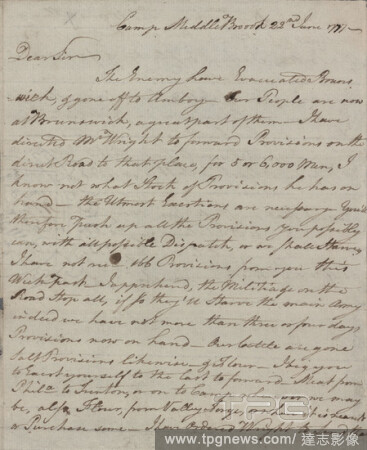 Camp Middle Brook 23rd June 1777
Dear Sir
The Enemy have Evacuated Bruns
wick, & gone off to Amboy Our People are now
at Brunswick, a great part of them I have
directed Mr Wright to forward Provisions on the
direct Road to that place, for 5 or 6,000 Men, I
know not what Stock of Provisions he has on
hand the Utmost Exertions are necessary You'd
therefore push up all the Provisions you possibly
can, with all possible Dispatch, or we shall Starve,
I have not rec'd Provisions from you this
Week past I apprehend, the Militia on the
Road Stop all, if so they'll Starve the main Army
indeed we have not more than three or four days
Provisions now on hand Our Cattle are gone
Salt Provisions likewise & Flour I beg you
to Exert yourself to the last to forward Meat from
Phila to Trenton, or on to may
be, also Flour, from Valley Forge,
or Purchase some I have Ordered Wright
tpg
www.tpgnews.com / 達志影像